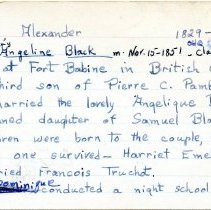 Alexander 1829-
Angeline Black m. Nov. 15-1851 - Cla
at Fort Babine in British C
third son of Pierre C. Pamb
arried the lovely Angelique
ned daughter of Samuel Bla
ren were born to the couple,
one survived - Harriet Eme
ried Francois Truchot.
Dominique
conducted a night school